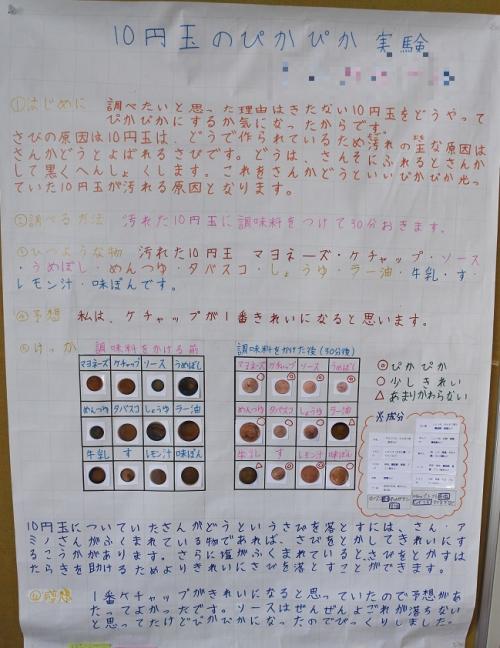 10円玉のぴかぴか実験
①はじめに 調べたいと思った理由はきたない10円玉をどうやって
ぴかぴかにするか気になったからです。
さびの原因は10円玉は、どうで作られているため汚れの主な原因は
さんかどうとよばれるさびです。どうは、さんそにふれるとさんか
して黒くへんしょくします。これをさんかどうといいぴかぴか光っ
ていた10円玉が汚れる原因となります。
②調べる方法 汚れた10円玉に調味料をつけて30分おきます。
③ひつような物 汚れた10円玉 マヨネーズ・ケチャップ・ソース
・うめぼし・めんつゆ・タバスコ・しょうゆ・ラー油・牛乳・す・
レモン汁・味ぽんです。
④予想 私は、ケチャップが1番きれいになると思います。
⑤けっか 調味料をかける前 調味料をかけた後(30分後)
マヨネーズ ケチャップ ソース うめぼし
めんつゆ タバスコ しょうゆ ラー油
牛乳 す レモン汁 味ぽん
マヨネーズ ケチャップ ソース うめぼし
めんつゆ タバスコ しょうゆ ラー油
牛乳 す レモン汁 味ぽん
◎ぴかぴか
○少しきれい
△あまりかわらない
※成分
10円玉についていたさんかどうというさびを落とすには、さん・ア
ミノさんがふくまれている物であれば、さびをとかしてきれいにす
るこうかがあります。さらに塩がふくまれているとさびをとかすは
たらきを助けるためよりきれいにさびを落とすことができます。
感想 1番ケチャップがきれいになると思っていたので予想があ
たってよかったです。ソースはぜんぜんよごれが落ちない
と思ってたけどぴかぴかになったのでびっくりしました。